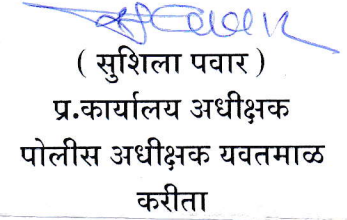 ( सुशिला पवार )
प्र.कार्यालय अधीक्षक
पोलीस अधीक्षक यवतमाळ
करीता